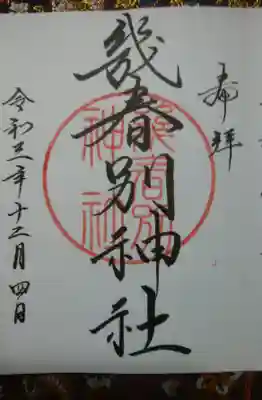 奉拝
幾春別神社
幾春別
神社
令和三年十二月四日